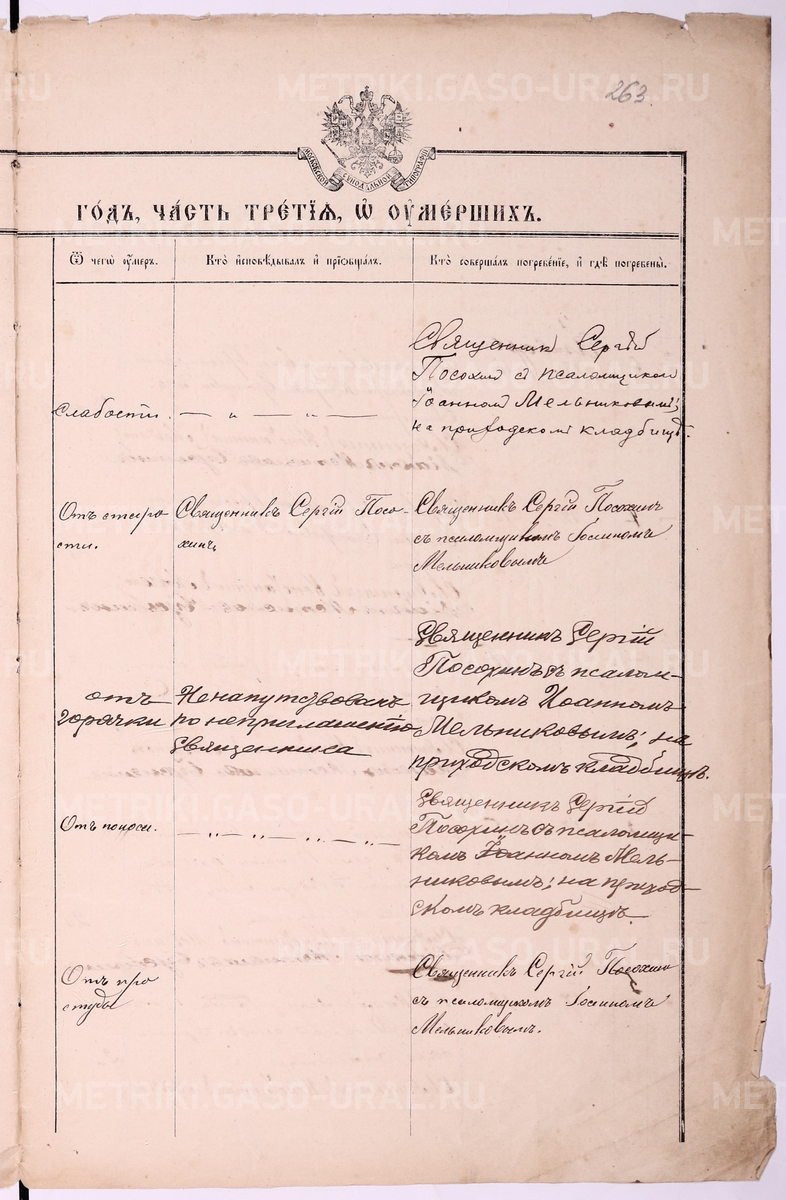 263.
МОСКОВСКОЙ СѴНОДАЛЬНОЙ ТИПОГРАФІИ
ГО́ДЪ, ЧА́СТЬ ТРЕ́ТІѦ, Ѡ҆ ОУ҆МЕ́РШИХЪ.
Ѿ чегѡ̀ ᲂу҆́меръ.
Кто̀ и҆сповѣ́дывалъ и҆ прїѡбща́лъ.
Кто̀ соверша́лъ погребе́нїе, и҆ гдѣ̀ погребены̀.
слабости.
— „ — „ —
Священник Сергій
Посохин с псаломщиком
Іоанном Мельниковым;
на приходском кладбищѣ.
Отъ старо-
сти.
Священникъ Сергій Посо-
хинъ
Священникъ Сергій Посохинъ
съ псаломщикомъ Іоанномъ
Мельниковымъ
отъ
горячки
Не напутствованъ
по неприглашенію
священника
Священникъ Сергій
Посохинъ съ псалом-
щикомъ Іоанномъ
Мельниковымъ; на
приходскомъ кладбищѣ.
Отъ поноса.
— „ — „ — „ — „ —
Священникъ Сергій
Посохинъ съ псаломщи-
комъ Іоанномъ Мель-
никовымъ; на приход-
скомъ кладбищѣ.
Отъ про
студы
Священникъ Сергій Посохинъ
съ псаломщикомъ Іоанномъ
Мельниковымъ.
METRIKI.GASO-URAL.RU